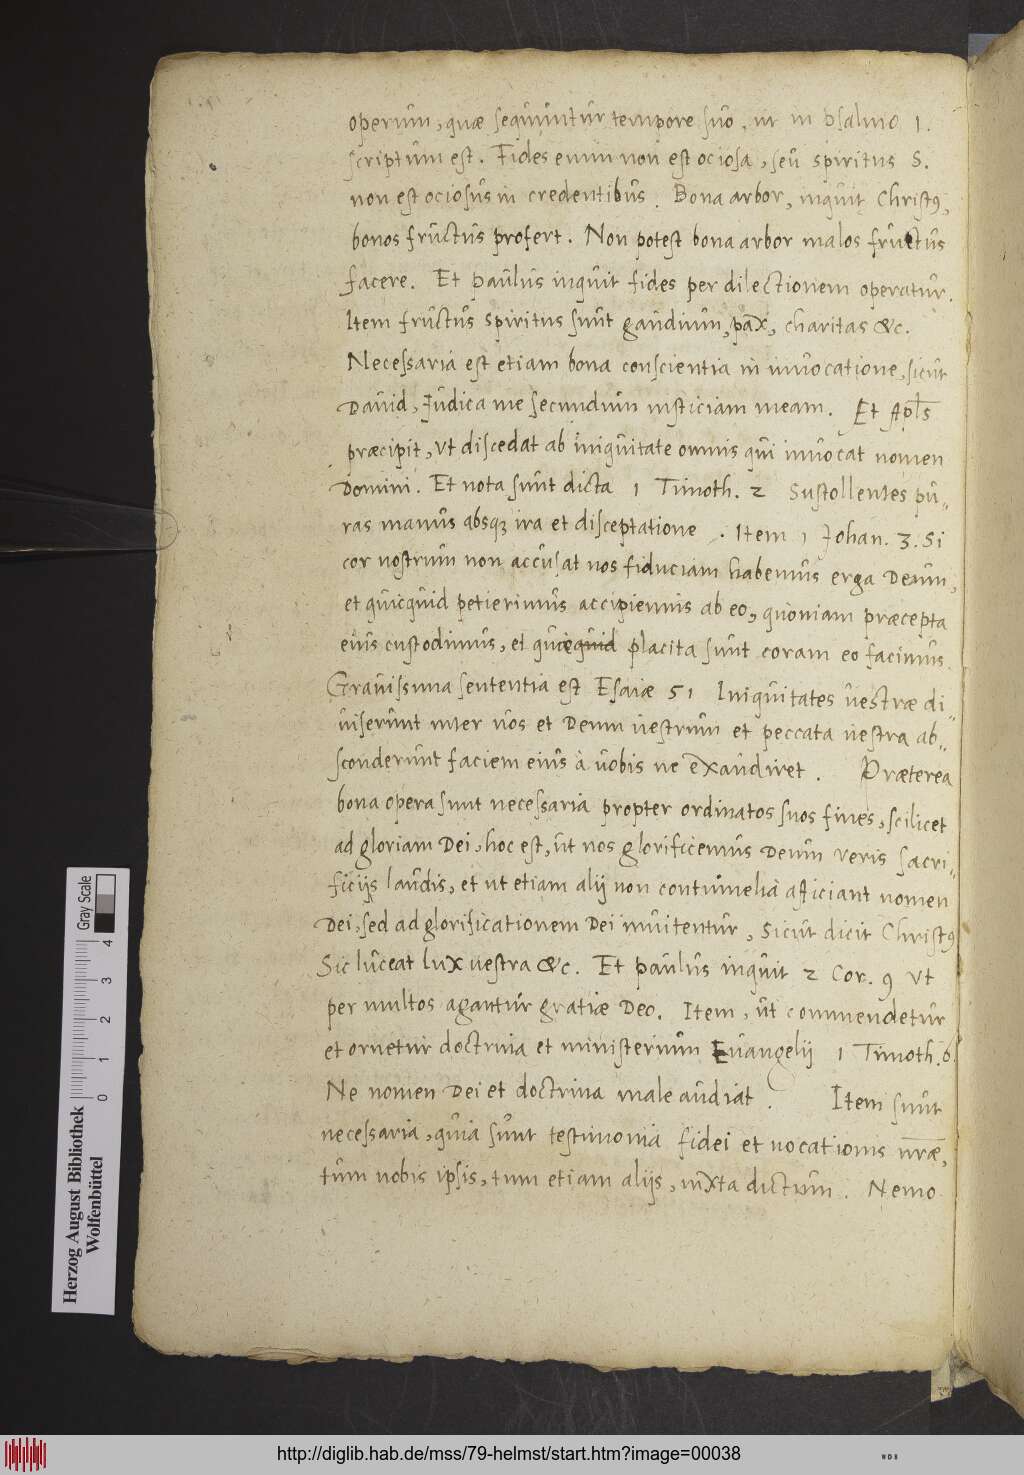 operum, quæ sequuntur tempore suo, ut in psalmo 1.
scriptum est. Fides enim non est ociosa, seu spiritus S.
non est ociosus in credentibus. Bona arbor, inquit Christ9,
bonos fructus profert. Non potest bona arbor malos fructus
facere. Et paulus inquit fides per dilectionem operatur.
Item fructus spiritus sunt gaudium, pax, charitas &c.
Necessaria est etiam bona conscientia in invocatione, sicut
David, Judica me secundum iusticiam meam. Et Apls
præcipit, ut discedat ab iniquitate omnis qui invocat nomen
Domini. Et nota sunt dicta 1 Timoth. 2 Sustollentes pu⸗
ras manus absqz ira et disceptatione. Item 1 Johan. 3. Si
cor nostrum non accusat nos fiduciam habemus erga Deum,
et quicquid petierimus accipiemus ab eo, quoniam præcepta
eius custodimus, et quicquid placita sunt coram eo facimus.
Gravissima sententia est Esaiæ 51 Iniquitates vestræ di⸗
viserunt inter vos et Deum vestrum et peccata vestra ab⸗
sconderunt faciem eius à vobis ne exaudiret. Præterea
bona opera sunt necessaria propter ordinatos suos fines, scilicet
ad gloriam Dei, hoc est, ut nos glorificemus Deum veris sacri⸗
ficijs laudis, et ut etiam alij non contumelia afficiant nomen
Dei, sed ad glorificationem Dei invitentur, sicut dicit Christ9
Sic luceat lux vestra &c. Et paulus inquit 2 Cor. 9 ut
per multos agantur gratiæ Deo. Item, ut commendetur
et ornetur doctrina et ministerium Evangelij 1 Timoth. 6.
Ne nomen Dei et doctrina male audiat. Item sunt
necessaria, quia sunt testimonia fidei et vocationis nræ,
tum nobis ipsis, tum etiam alijs, iuxta dictum. Nemo
Herzog August Bibliothek
Wolfenbüttel
0 1 2 3 4
Gray Scale
http://diglib.hab.de/mss/79-helmst/start.htm?image=00038
WDB